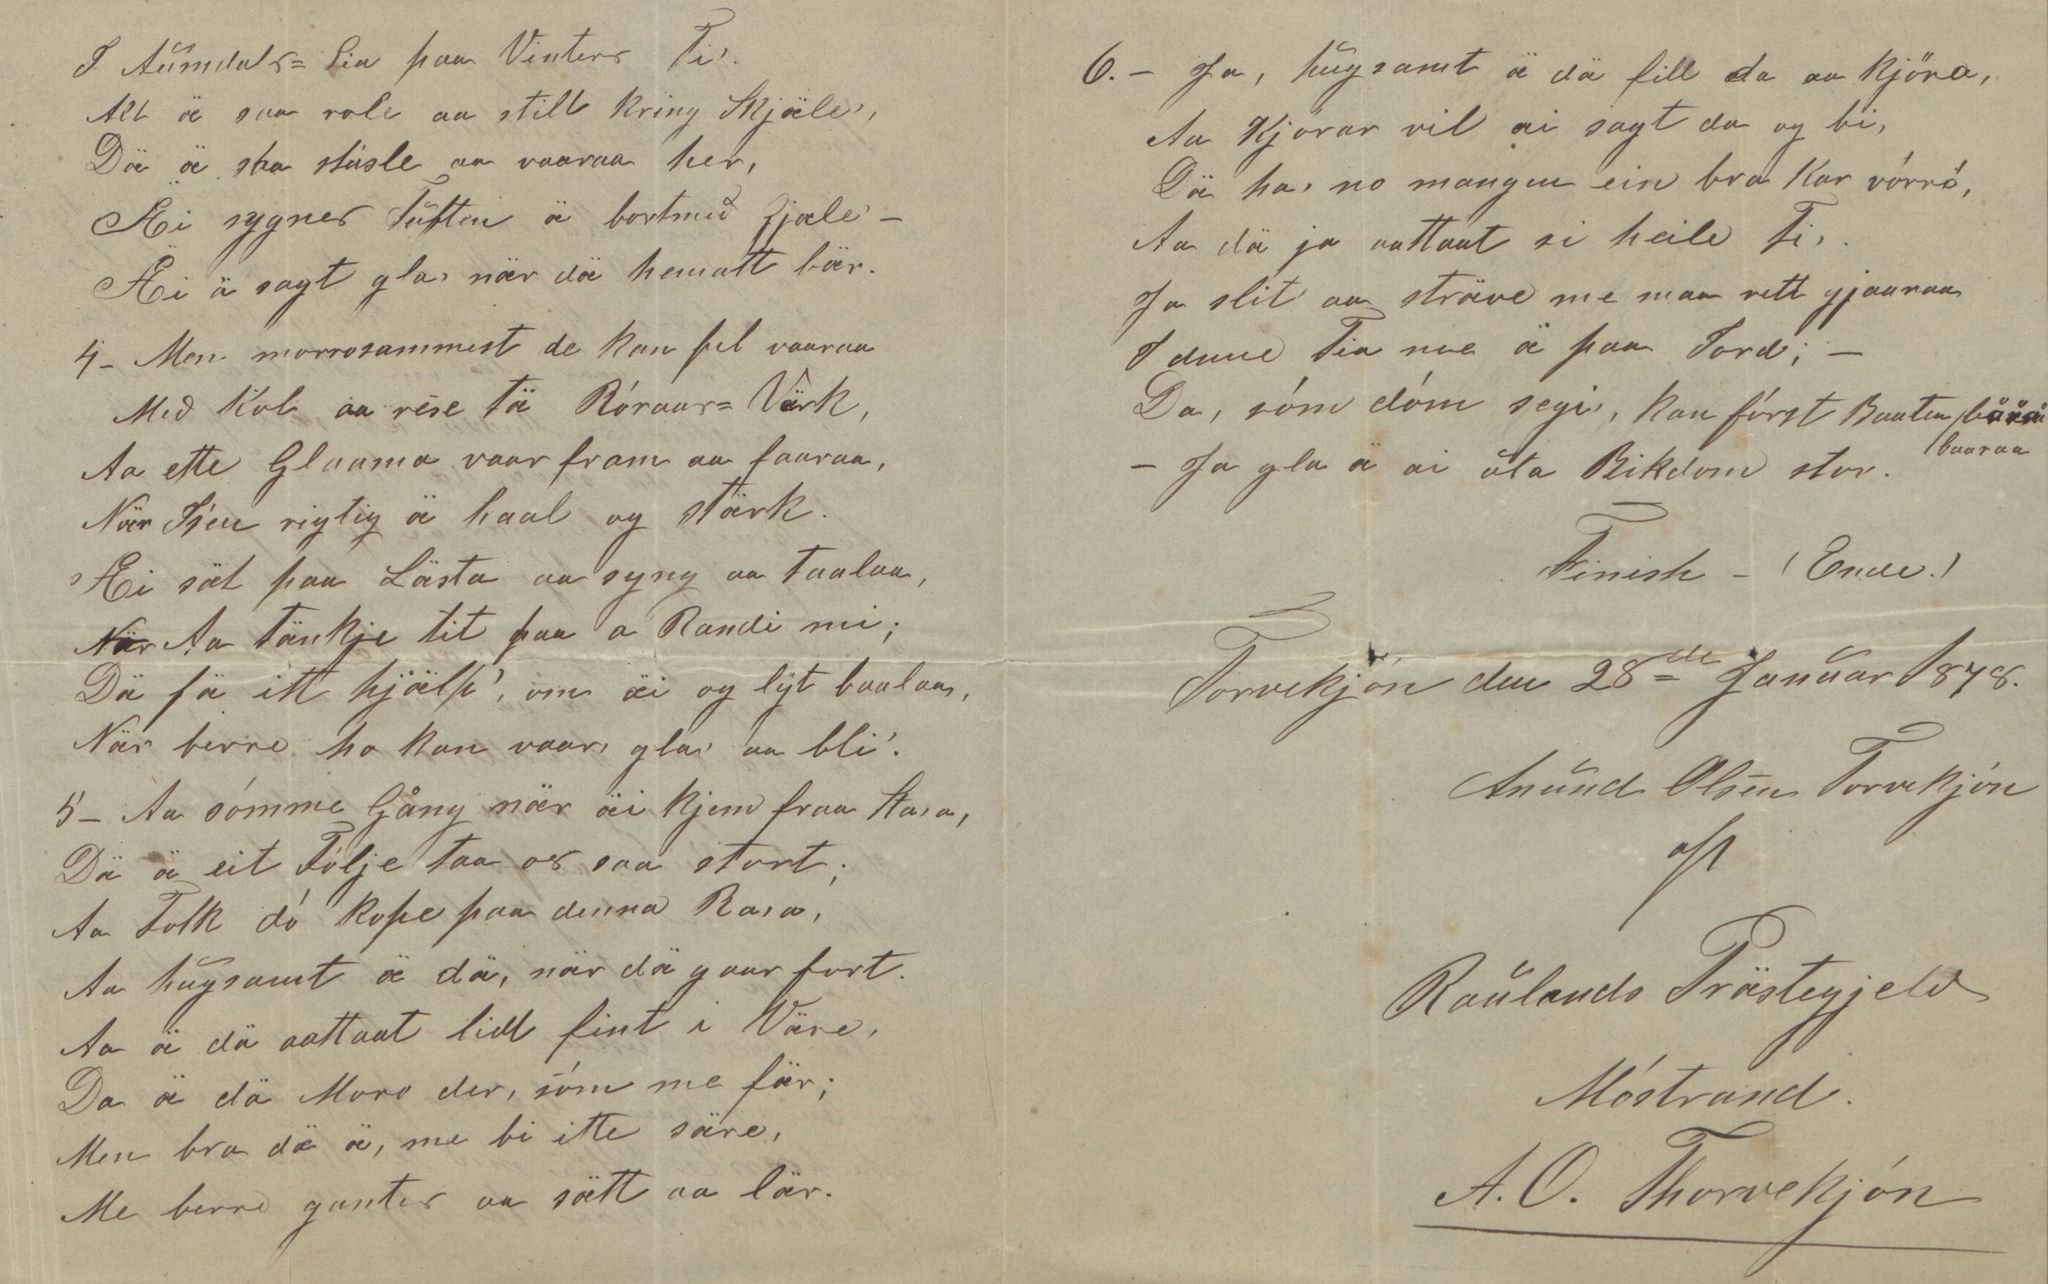 I Aumdals= Lia paa Vinters Ti'.
Alt ä saa role aa still kring Skjäle',
Dä ä saa stusle aa vaaraa her,
Äi sygnes Tuften ä bortmed Fjæle' –
Äi ä sagt gla, när dä hematt bär.
4 – Men morrosammest de kan fel vaaraa
Med Kol aa reise tä Róraas= Värk,
Aa ette Glaama vaar fram aa faaraa,
När Isen rigtig ä haal og stärk.
Äi sät paa Lästa aa syng aa taalaa,
Aa tänkje tit paa a Randi mi;
Dä fä itt hjälp', om äi og lyt baalaa,
När berre ho kan vaar, gla, aa bli'.
5 – Aa sómme Gång när äi kjem fraa Stasa,
Dä ä eit Fólje taa os saa stort;
Aa Folk dó kope paa denna Rasa,
Aa hugsamt ä dä, när dä gaar fort.
Aa ä dä aattaat lidt fint i Väre,
Da ä dä Moro der, sóm me fär;
Men bra dä ä, me bi itte säre,
Me berre gantes aa sätt aa lär.
6. – Ja, hugsamt ä dä fill da aa kjöra,
Aa Kjórar vil äi sagt da og bi,
Dä ha, no mangen ein bra Kar vórró,
Aa dä ja aattaat si heile Ti,.
Ja slit aa sträve me maa rett gjaaraa
I denne Tia me ä paa Jord; –
Da, sóm dóm segi', kan fórst Baaten
baaraa
– Ja gla ä äi uta Rikdom stor.
Finish – (Ende.)
Torvekjón den 28de Januar 1878.
Anund Olsen Torvekjón
af
Raulands Prästegjeld
Móstrand.
A. O. Thorvekjón